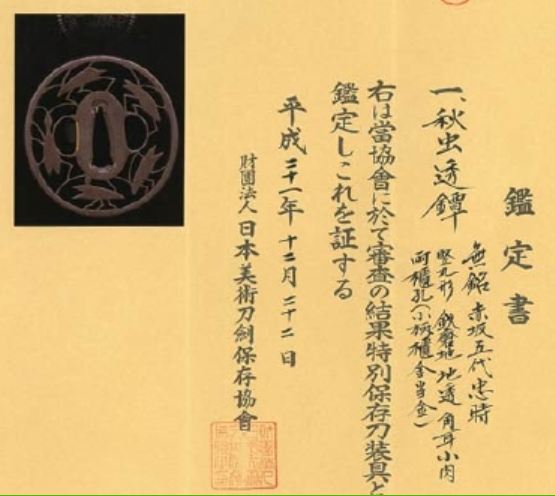 鑑定書
一、秋虫透鐔
無銘 赤坂五代忠時
竪丸形 鉄磨地 地透 角耳小肉
両櫃孔(小柄櫃金当金)
右は當協會に於て審査の結果特別保存刀装具と
鑑定しこれを証する
平成二十一年十二月二十二日
財團法人 日本美術刀劍保存協會